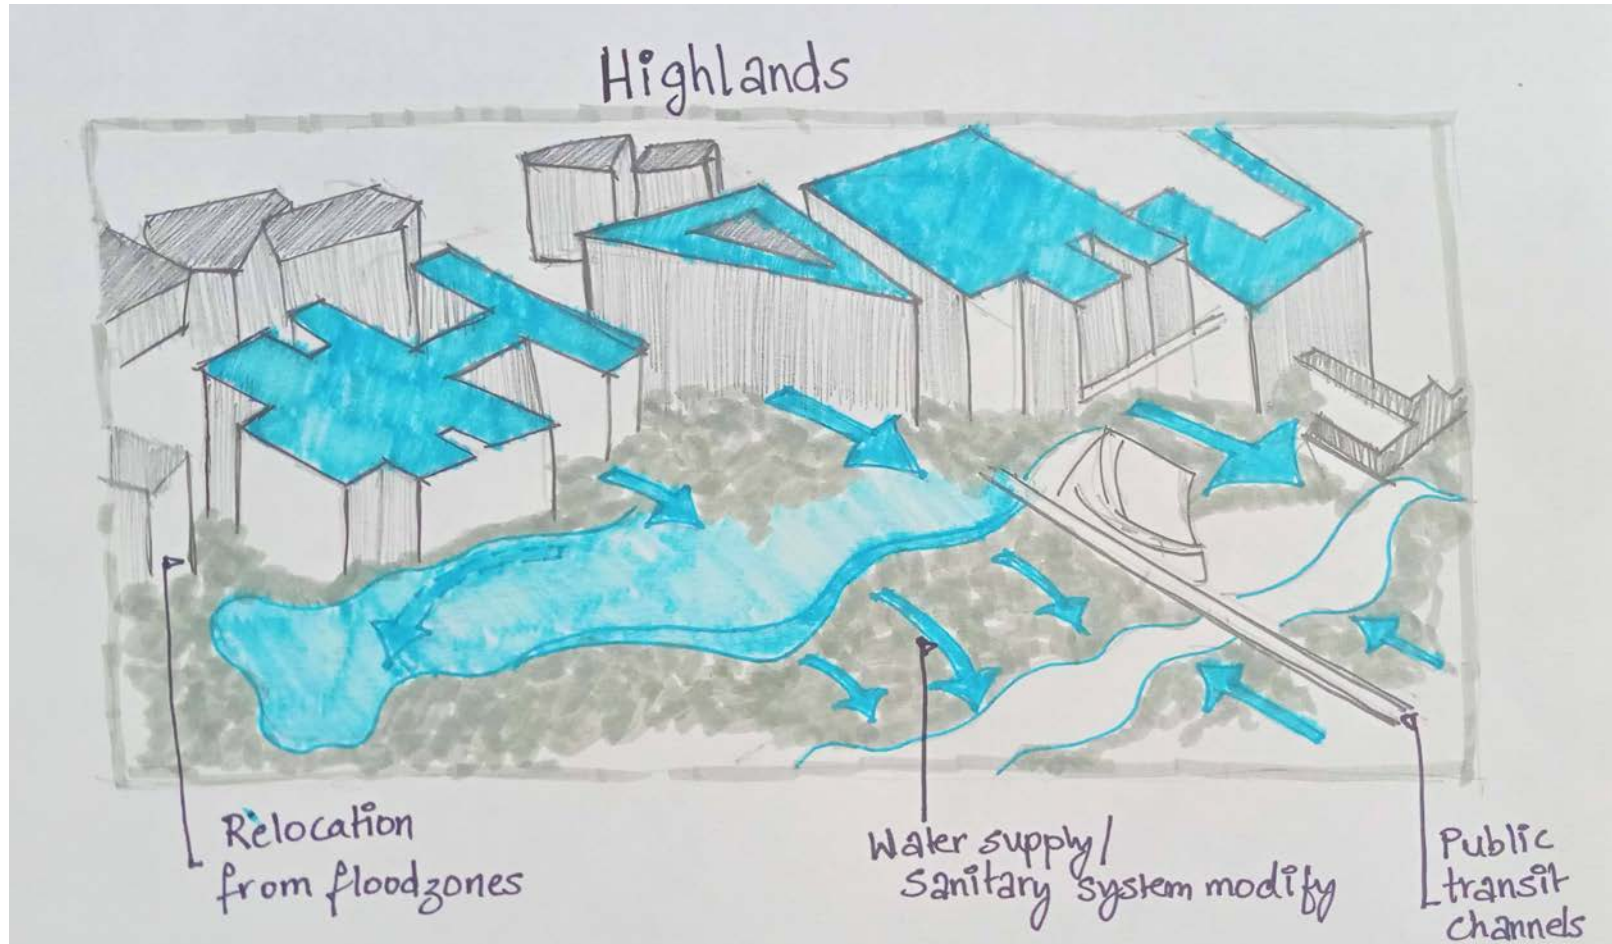 Highlands
Relocation
from floodzones
Water supply/
Sanitary system modify
Public
transit
channels